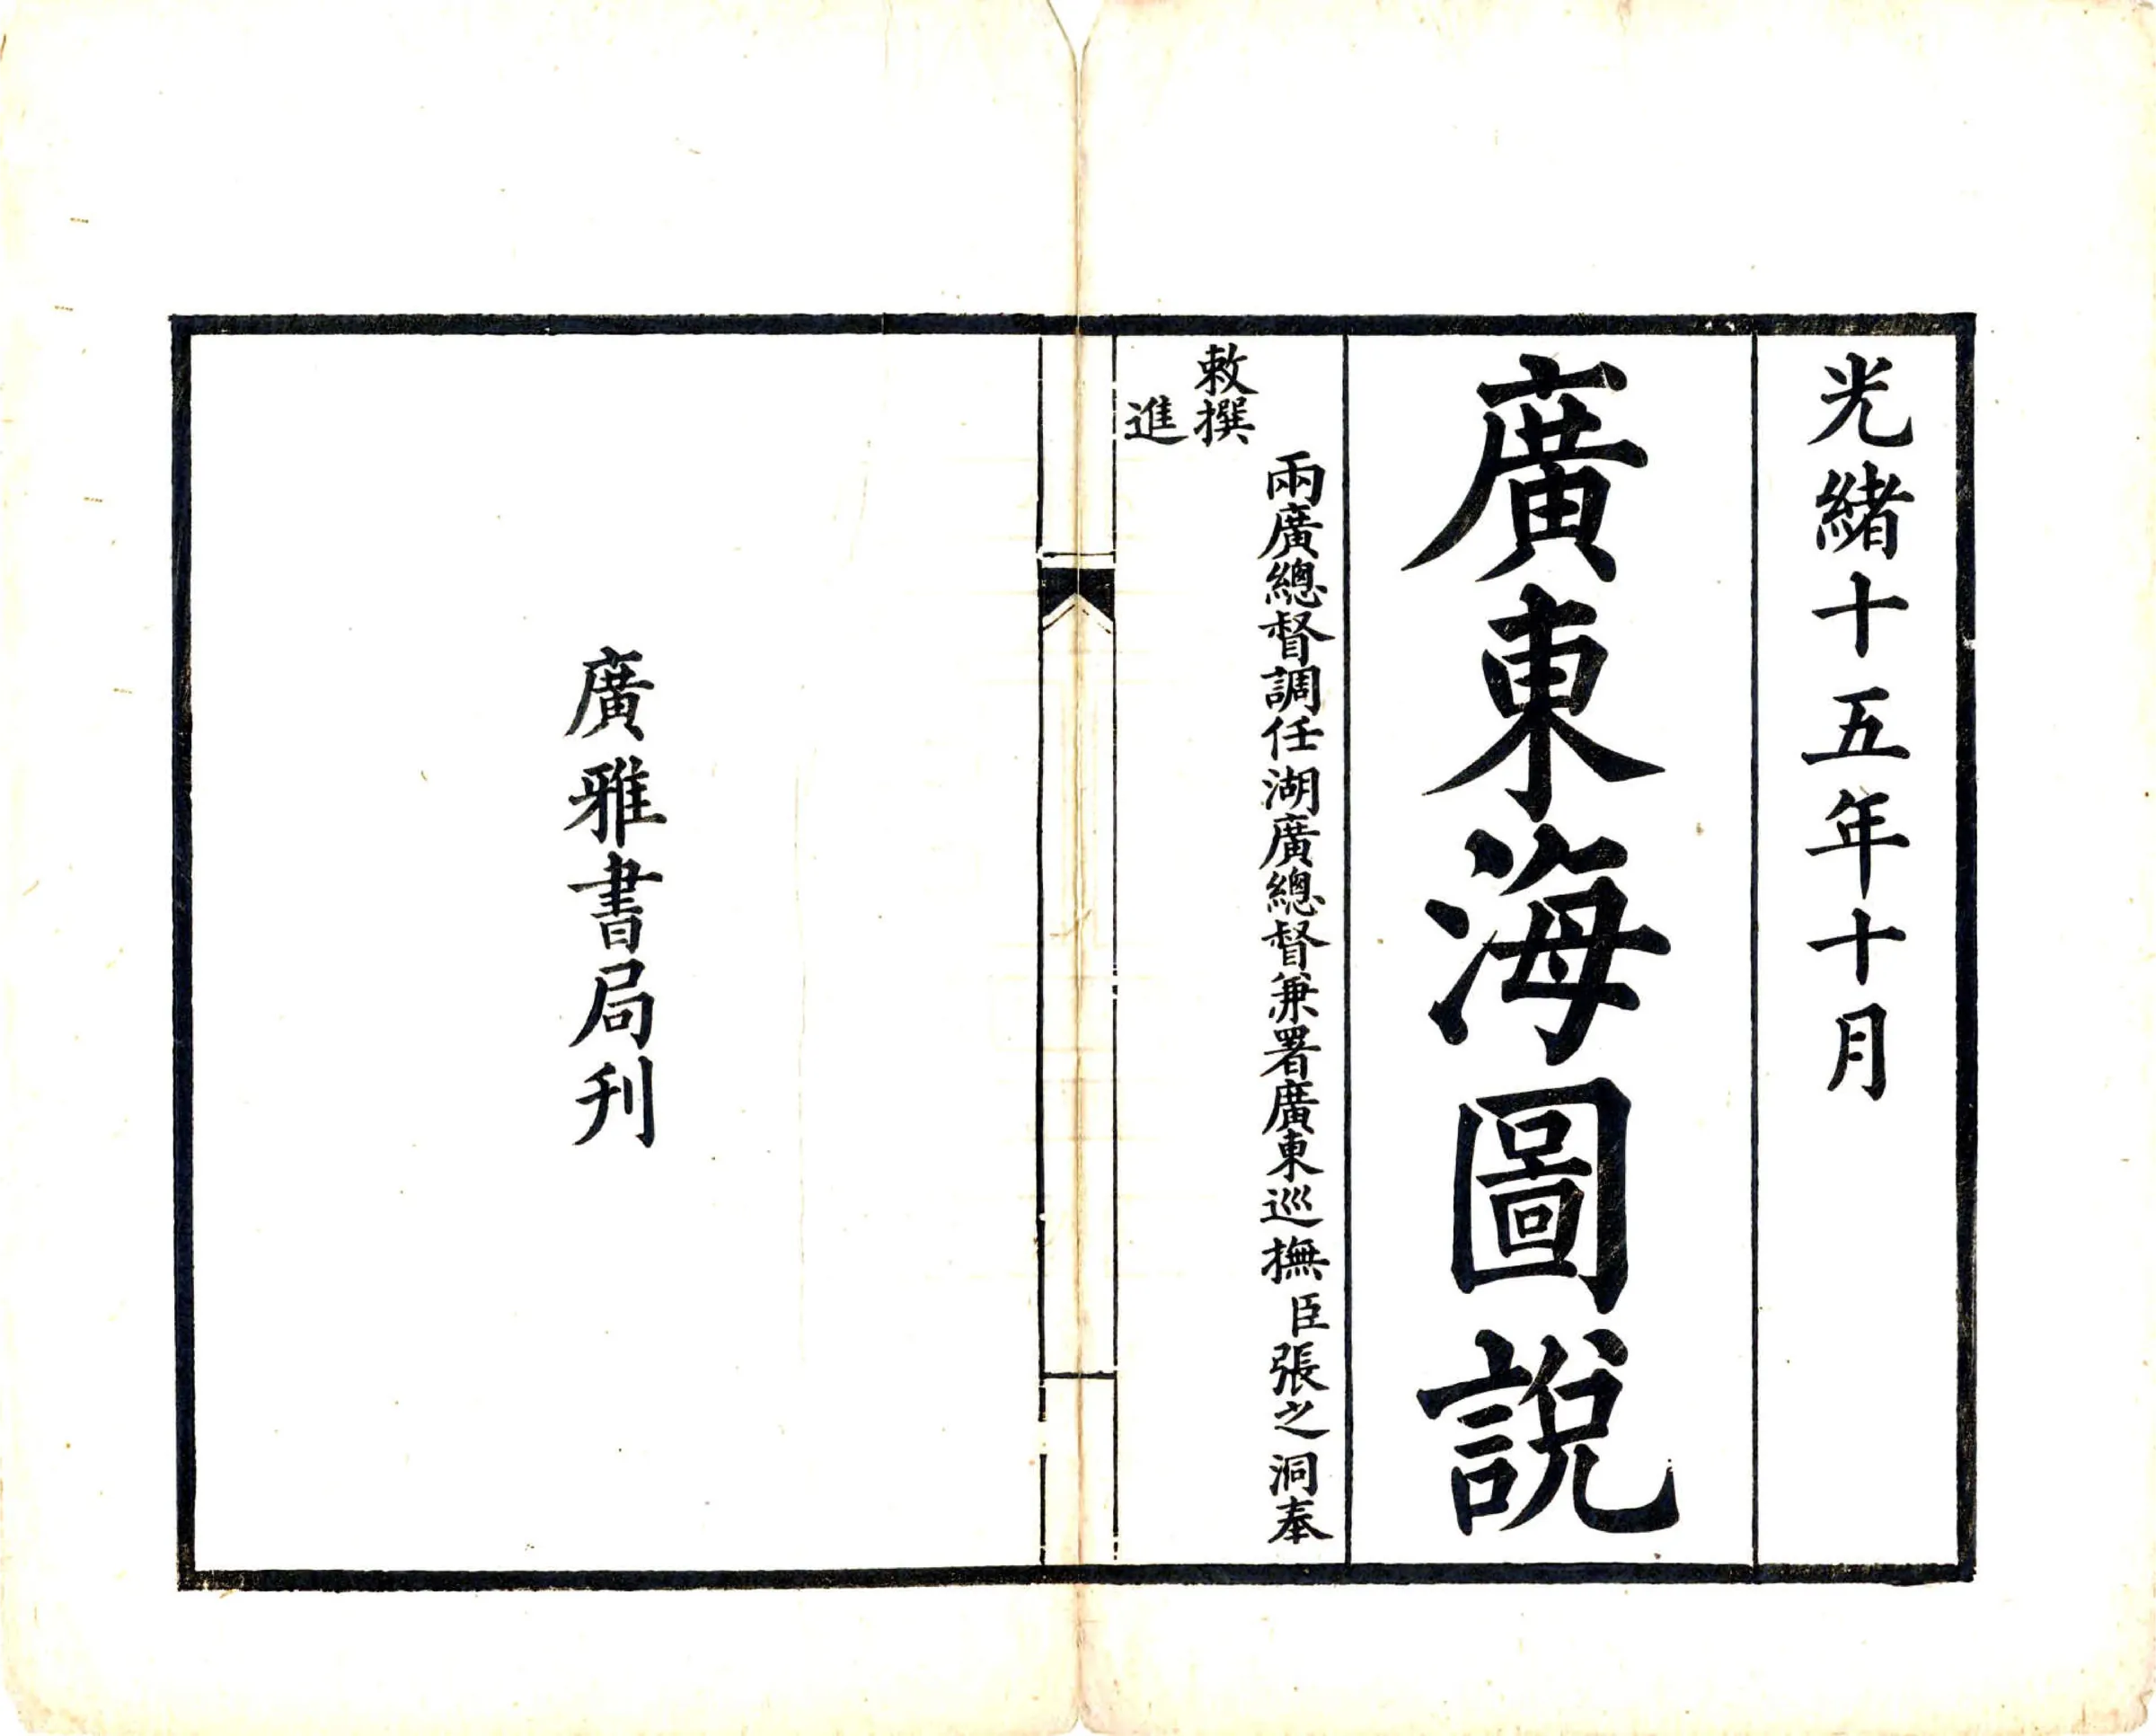 光緒十五年十月
廣東海圖說
兩廣總督調任湖廣總督兼署廣東巡撫臣張之洞奉
敕撰
進
廣雅書局刊